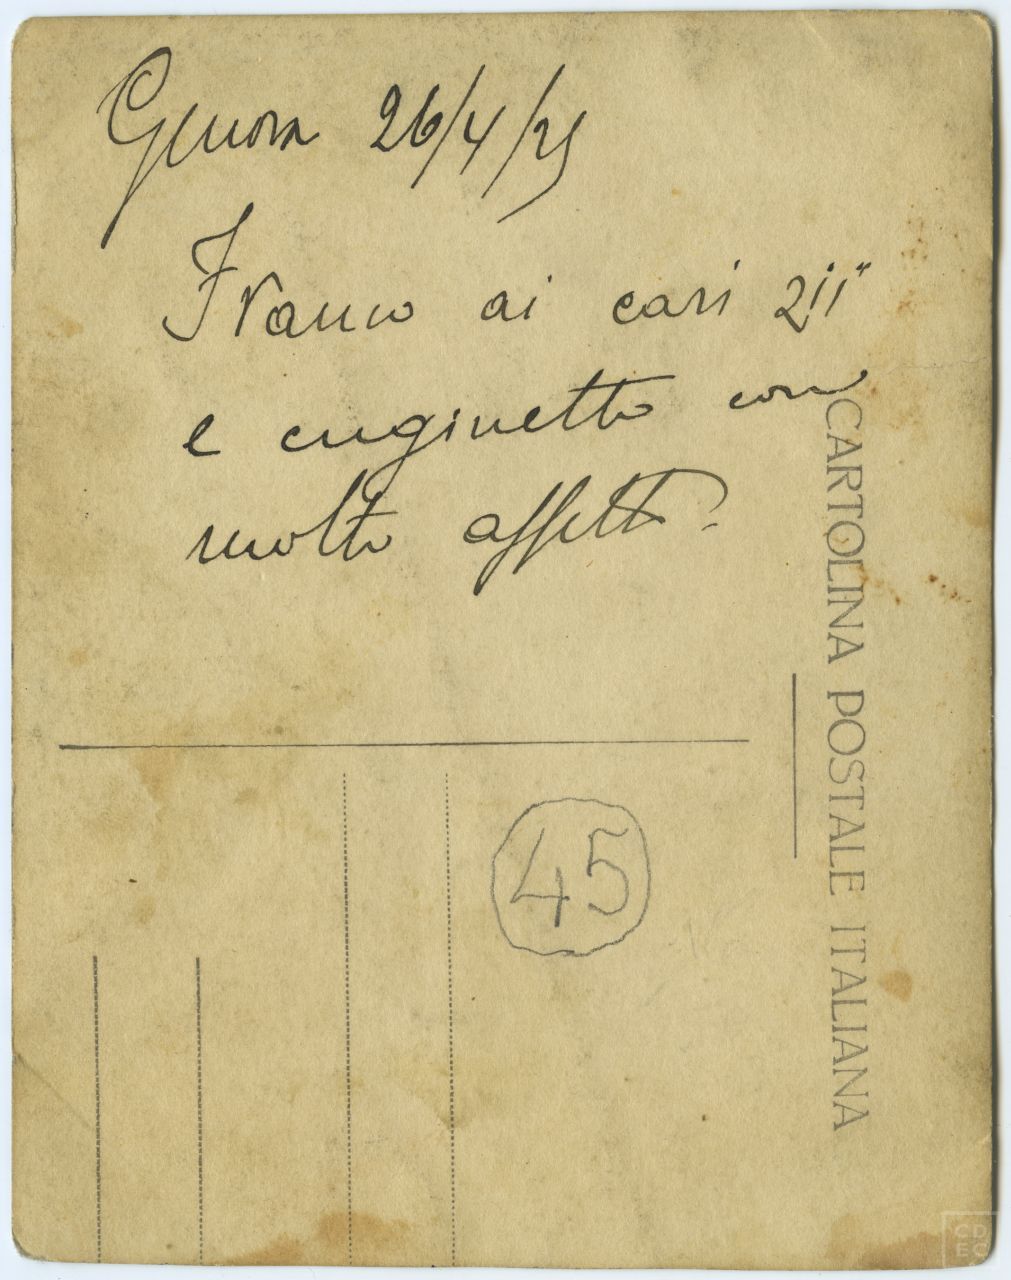 Genova 26/4/25
Franco ai cari zii
e cuginetto con
molto affetto.
CARTOLINA POSTALE ITALIANA
45
CD
EC